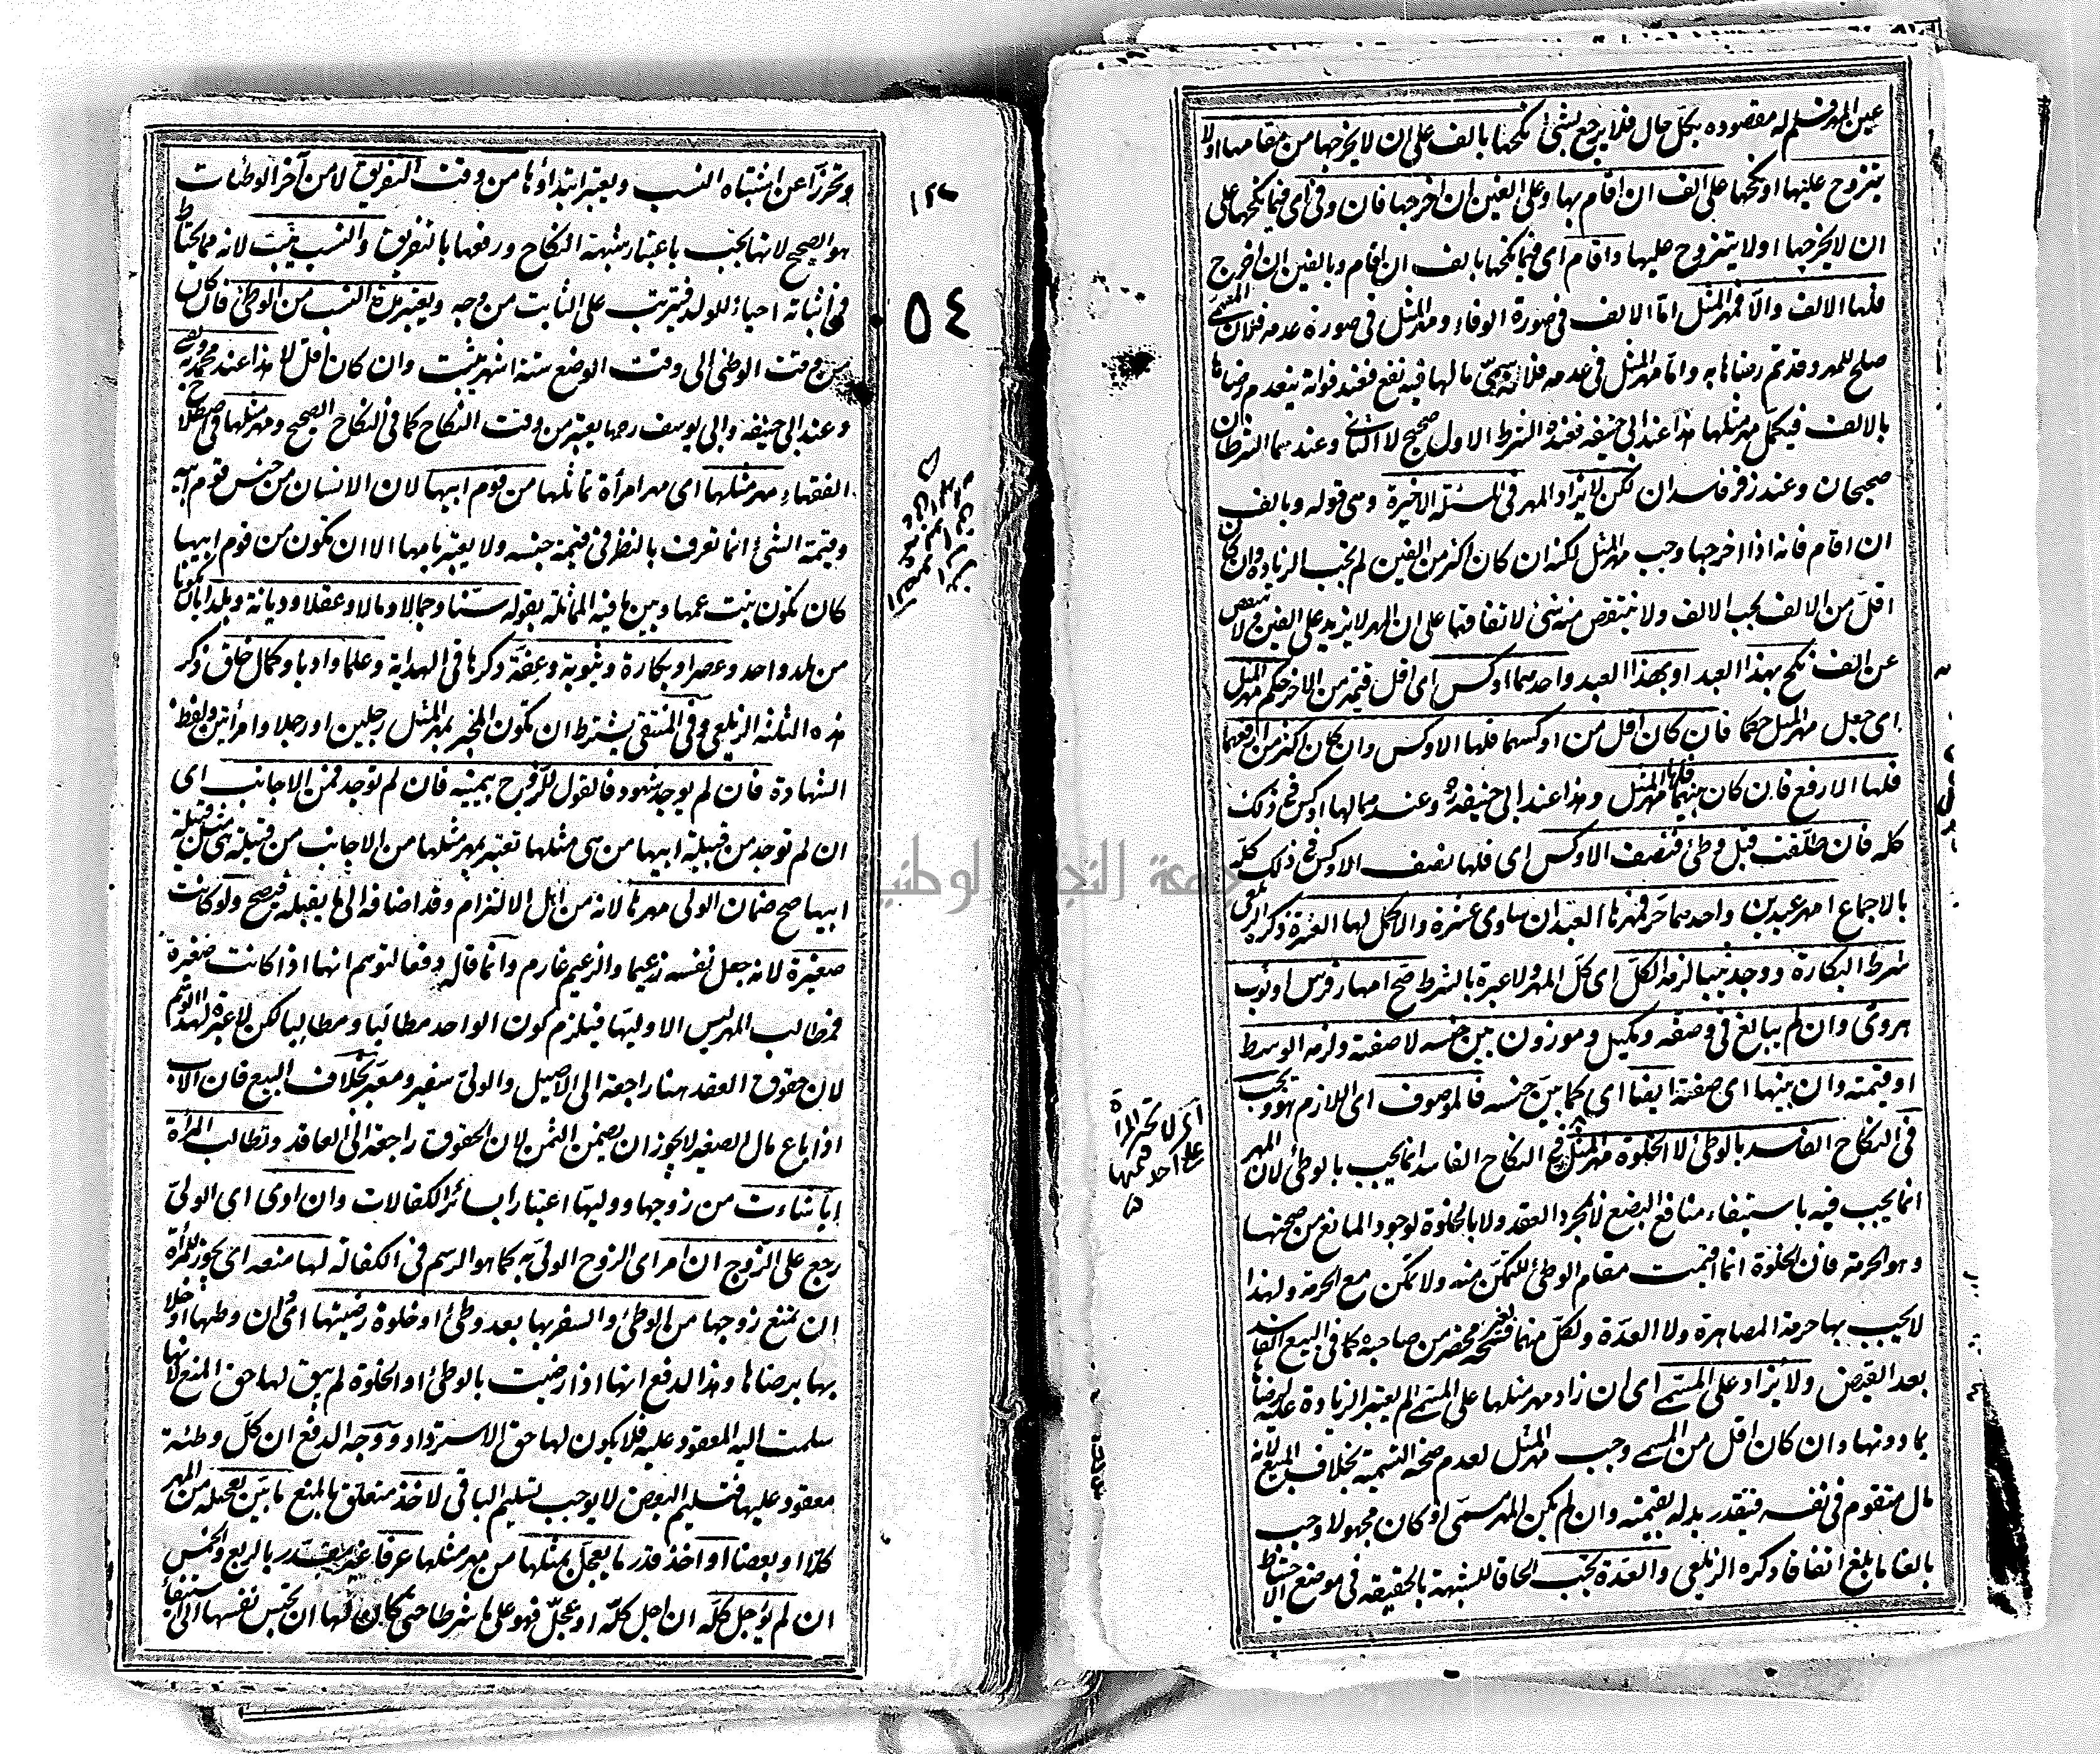 عين المهر فسلم له مقصوده بكل حال فلا يرجع بشئ نكحها بالف على ان لا يخرجها من مقامها او لا
يتزوج عليها او نكحها على الف ان اقام بها وعلى الفين ان اخرجها فان وفى اى فيما نكحها على
ان لا يخرجها او لا يتزوج عليها واقام اى فيما نكحها بالف ان اقام وبالفين ان اخرج
فلها الالف والا فمهر المثل اما الالف فى صورة الوفاء ومهر المثل فى صورة عدمه فلان المسمى
صلح للمهر وقد تم رضاها به واما مهر المثل فى عدمه فلانه سمى ما لها فيه نفع فعند فواته ينعدم رضاها
بالالف فيكمل مهر مثلها هذا عند ابى حنيفه فعنده الشرط الاول صحيح لا الثانى وعندهما الشرطان
صحيحان وعند زفر فاسدان لكن لا يزاد المهر فى المسئلة الاخيرة وهى قوله وبالف
ان اقام فانه اذا اخرجها وجب مهر المثل لكنه ان كان اكثر من الفين لم يجب الزيادة وان كان
اقل من الالف يجب الالف ولا ينتقص منه شئ لاتفاقهما على ان المهر لا يزيد على الفين ولا ينقص
عن الف نكح بهذا العبد او بهذا العبد واحدهما اوكس اى اقل قيمة من الاخر حكم مهر المثل
اى جعل مهر المثل حكما فان كان اقل من اوكسهما فلها الاوكس وان كان اكثر من ارفعهما
فلها الارفع فان كان بينهما فلها مهر المثل وهذا عند ابى حنيفه وعندهما لها اوكس فى ذلك
كله فان طلقت قبل وطئ فنصف الاوكس اى فلها نصف الاوكس فى ذلك كله
بالاجماع امهر عبدين واحدهما حر فمهرها العبد ان ساوى عشرة والا كمل لها العشرة ذكره الزيلعى
شرط البكارة ووجد ثيبا لزمه الكل اى كل المهر ولا عبرة بالشرط صح امهار فرس او ثوب
هروى وان لم يبالغ فى وصفه ومكيل وموزون بين جنسه لا صفته ولزمه الوسط
او قيمته وان بينها اى صفته ايضا اى كما بين جنسه فالموصوف اى اللازم هو ويجب
فى النكاح الفاسد بالوطئ لا الخلوة مهر المثل فى النكاح الفاسد انما يجب بالوطئ لان المهر
انما يجب فيه باستيفاء منافع البضع لا بمجرد العقد ولا بالخلوة لوجود المانع من صحتها
وهو الحرمة فان الخلوة انما اقيمت مقام الوطئ للتمكن منه ولا تمكن مع الحرمة ولهذا
لا يجب بها حرمة المصاهرة ولا العدة ولكل منهما فسخه بغير محضر من صاحبه كما فى البيع الفاسد
بعد القبض ولا يزاد على المسمى اى ان زاد مهر مثلها على المسمى لم يعتبر الزيادة عليه لرضاها
بما دونها وان كان اقل من المسمى وجب مهر المثل لعدم صحة التسمية بخلاف المبيع لانه
مال متقوم فى نفسه فيتقدر بدله بقيمته وان لم يكن المهر مسمى او كان مجهولا وجب
بالغا ما بلغ اتفاقا ذكره الزيلعى والعدة تجب الحاقا للشبهة بالحقيقة فى موضع الاحتياط
اى لا تجبر المرأة
على اخذ قيمتها
وتحرزا عن اشتباه النسب ويعتبر ابتداؤها من وقت التفريق لا من آخر الوطئات
هو الصحيح لانها تجب باعتبار شبهة النكاح ورفعها بالتفريق والنسب يثبت لانه مما يحتاط
فى اثباته احياء للولد فيترتب على الثابت من وجه ويعتبر مدة النسب من الوطئ فان كان
من وقت الوطئ الى وقت الوضع ستة اشهر يثبت وان كان اقل لا هذا عند محمد وبه يفتى
وعند ابى حنيفه وابى يوسف رحمهما يعتبر من وقت النكاح كما فى النكاح الصحيح ومهر مثلها فى اصطلاح
الفقهاء مهر مثلها اى مهر امرأة تماثلها من قوم ابيها لان الانسان من جنس قوم ابيه
وقيمة الشئ انما تعرف بالنظر فى قيمة جنسه ولا يعتبر بامها الا ان تكون من قوم ابيها
كان تكون بنت عمها وبين ما فيه المماثلة بقوله سنا وجمالا ومالا وعقلا وديانة وبلدا بان يكونا
من بلد واحد وعصرا وبكارة وثيوبة وعفة ذكرها فى الهداية وعلما وادبا وكمال خلق ذكر
هذه الثلثة الزيلعى وفى المنتقى يشترط ان يكون المخبر بمهر المثل رجلين او رجلا وامرأتين ولفظ
الشهادة فان لم يوجد شهود فالقول للزوج بيمينه فان لم توجد فمن الاجانب اى
ان لم توجد من قبيلة ابيها من هى مثلها تعتبر بمهر مثلها من الاجانب من قبيلة هى مثل قبيلة
ابيها صح ضمان الولى مهرها لانه من اهل الالتزام وقد اضافه الى ما يقبله فيصح ولو كانت
صغيرة لانه جعل نفسه زعيما والزعيم غارم وانما قال دفعا لتوهم انها اذا كانت صغيرة
فمطالب المهر ليس الا وليها فيلزم كون الواحد مطالبا ومطالبا لكن لا عبرة لهذا الوهم
لان حقوق العقد هنا راجعة الى الاصيل والولى سفير ومعبر بخلاف البيع فان الاب
اذا باع مال الصغير لا يجوز ان يضمن الثمن لان الحقوق راجعة الى العاقد وتطالب المرأة
ايا شاءت من زوجها ووليها اعتبارا بسائر الكفالات وان ادى اى الولى
رجع على الزوج ان امر اى الزوج الولى به كما هو الرسم فى الكفالة لها منعه اى يجوز للمرأة
ان تمنع زوجها من الوطئ والسفر بها بعد وطئ او خلوة رضيتها اى ان وطئها او خلا
بها برضاها وهذا لدفع انها اذا رضيت بالوطئ او الخلوة لم يبق لها حق المنع لانها
سلمت اليه المعقود عليه فلا يكون لها حق الاسترداد ووجه الدفع ان كل وطئة
معقود عليها فتسليم البعض لا يوجب تسليم الباقى لاخذ متعلق بالمنع ما بين تعجيله من المهر
كلا او بعضا او اخذ قدر ما يعجل بمثلها من مهر مثلها عرفا غير مقدر بالربع والخمس
ان لم يؤجل كله ان اجل كله او عجل فهو على ما شرطا حتى كان لها ان تحبس نفسها الى استيفاء
٥٤
جامعة النجاح الوطنية